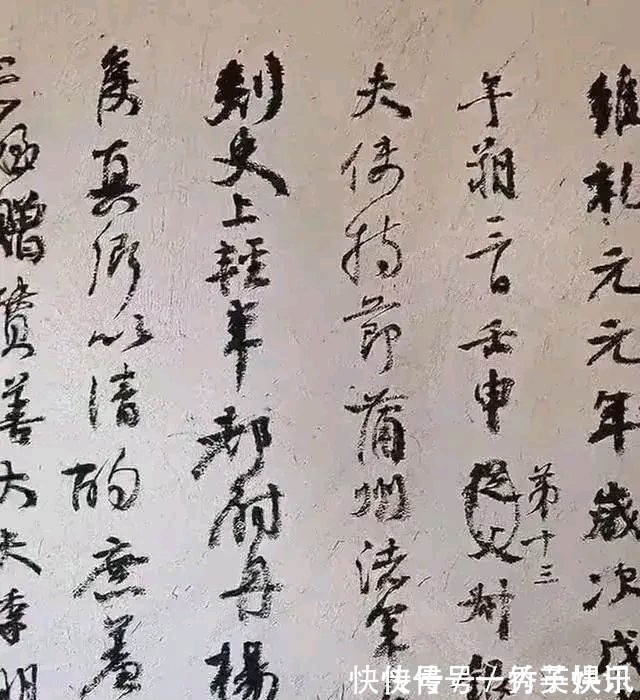 維乾元元年歲次戊
午朔三日壬申
第十三
從父叔銀
夫使持節蒲州諸軍
刺史上輕車都尉丹楊
侯真卿以清酌庶羞
亡姪贈贊善大夫季明
快传号/秀英娱讯